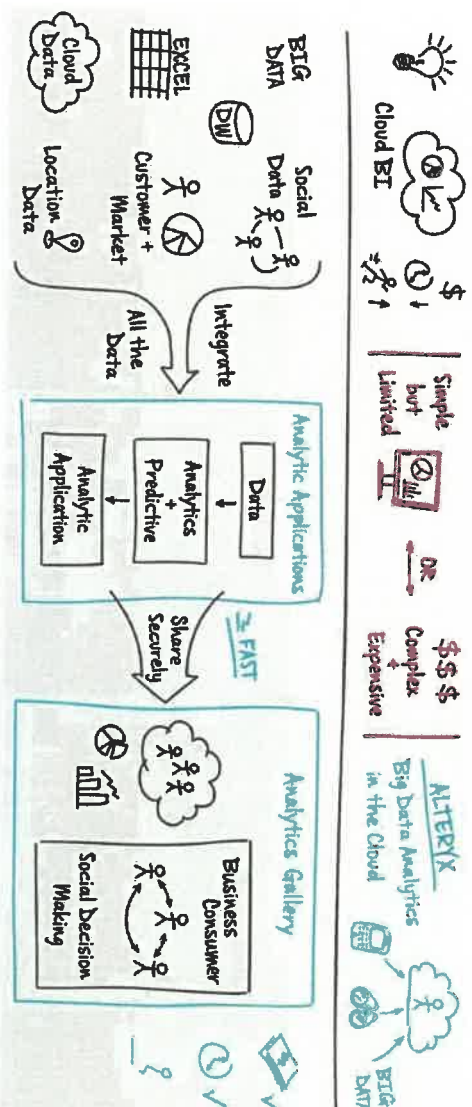 Cloud BI
$
Simple
but
Limited
OR
$$$
Complex
+
Expensive
ALTERYX
Big Data Analytics
in the Cloud
BIG
DATA
BIG
DATA
DW
EXCEL
Cloud
Data
Social
Data
Customer +
Market
Location
Data
Integrate
All the
Data
Analytic Applications
Data
Analytics
+
Predictive
Analytic
Application
FAST
Share
Securely
Analytics Gallery
Business
Consumer
Social Decision
Making